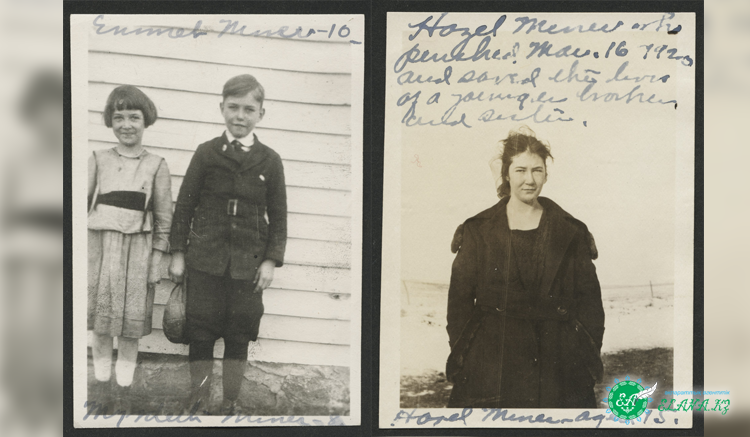 Emmet Miner-10
Hazel Miner who
perished Mar. 16 1920
and saved the lives
of a younger brother
and sister.
Myrdith Miner-8
Hazel Miner-age 15.
EA
ELANA.KZ